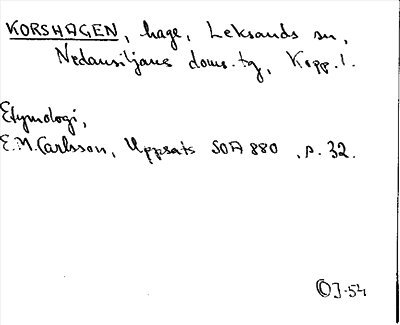 KORSHAGEN, hage, Leksands sn,
Nedansiljans doms.tg, Kopp.l.
Etymologi,
E.M.Carlsson, Uppsats SOA 880, s. 32.
OJ-54